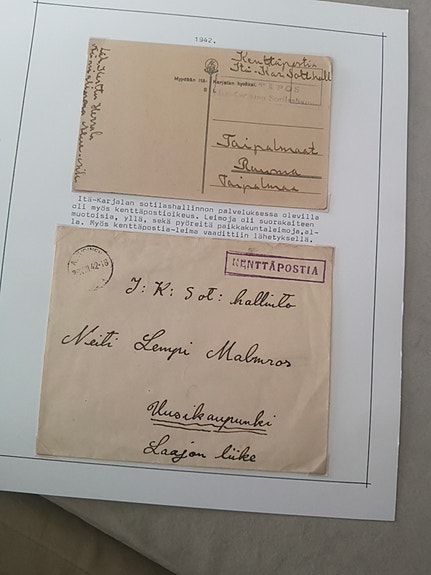 1942.
Kenttäpostia
Itä-Kar. Sot.hall
Myydään Itä-Karjalan hyväksi.
Taipalmaat
Rauma
Taipalmaa
Itä-Karjalan sotilashallinnon palveluksessa olevilla
oli myös kenttäpostioikeus. Leimoja oli suorakaiteen
muotoisia, yllä, sekä pyöreitä paikkakuntaleimoja, al-
la. Myös kenttäpostia-leima vaadittiin lähetyksellä.
KENTTÄPOSTIA
I: K: Sot: hallinto
Neiti Lempi Malmros
Uusikaupunki
Laajon liike